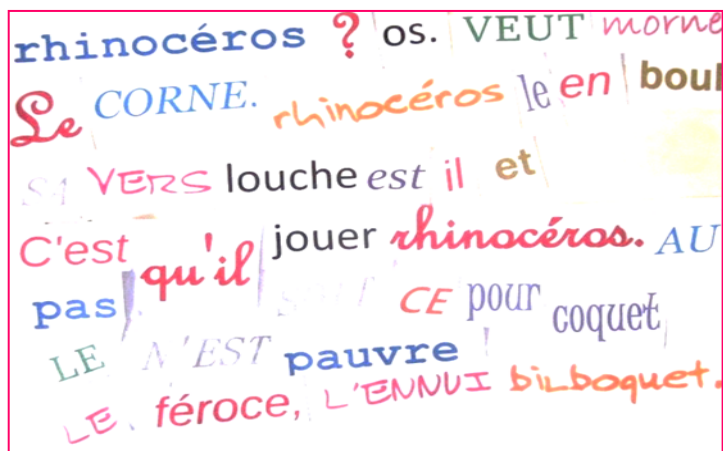 rhinocéros ? os. VEUT morne
Le CORNE. rhinocéros le en boul
SA VERS louche est il et
C'est qu'il ! jouer rhinocéros. AU
pas CE pour coquet
LE N'EST pauvre !
LE, féroce, L'ENNUI bilboquet.